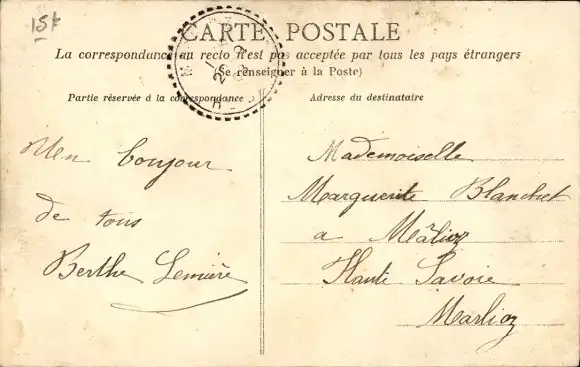 15f
CARTE POSTALE
La correspondance au recto n'est pas acceptée par tous les pays étrangers
(Se renseigner à la Poste)
Partie réservée à la correspondance
Adresse du destinataire
Un bonjour
de tous
Berthe Lemière
Mademoiselle
Marguerite Blanchet
a Mâlioz
Haute Savoie
Marlioz